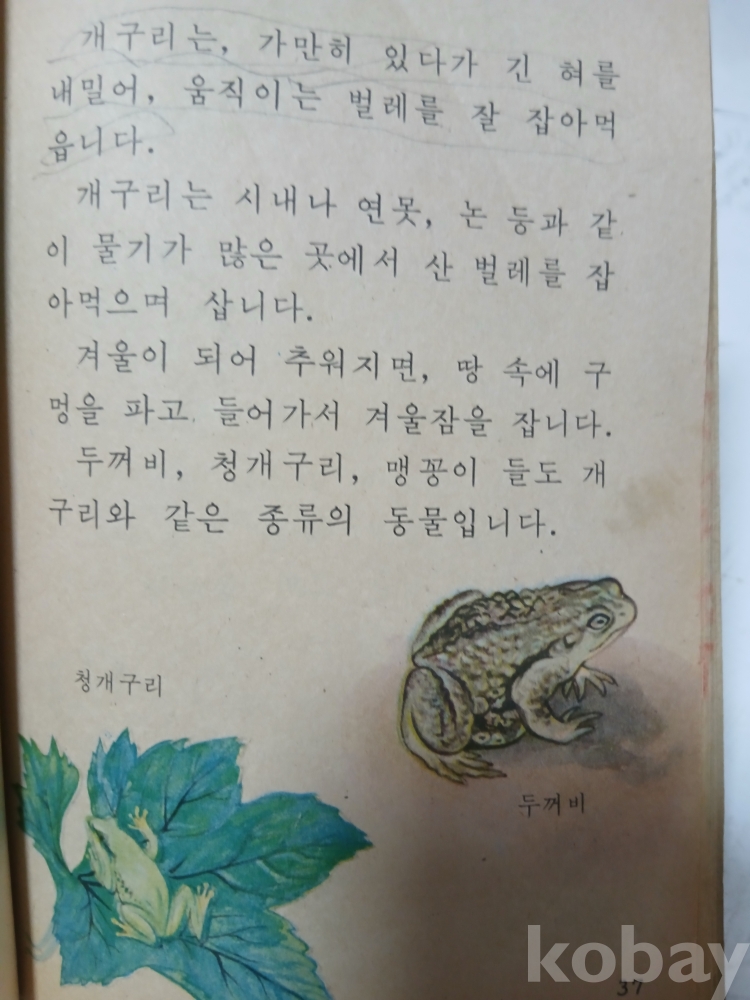 개구리는, 가만히 있다가 긴 혀를
내밀어, 움직이는 벌레를 잘 잡아먹
읍니다.
개구리는 시내나 연못, 논 둥과 같
이 물기가 많은 곳에서 산 벌레를 잡
아먹으며 삽니다.
겨울이 되어 추워지면, 땅 속에 구
멍을 파고 들어가서 겨울잠을 잡니다.
두꺼비, 청개구리, 맹꽁이 들도 개
구리와 같은 종류의 동물입니다.
청개구리
두꺼비
kobay
37